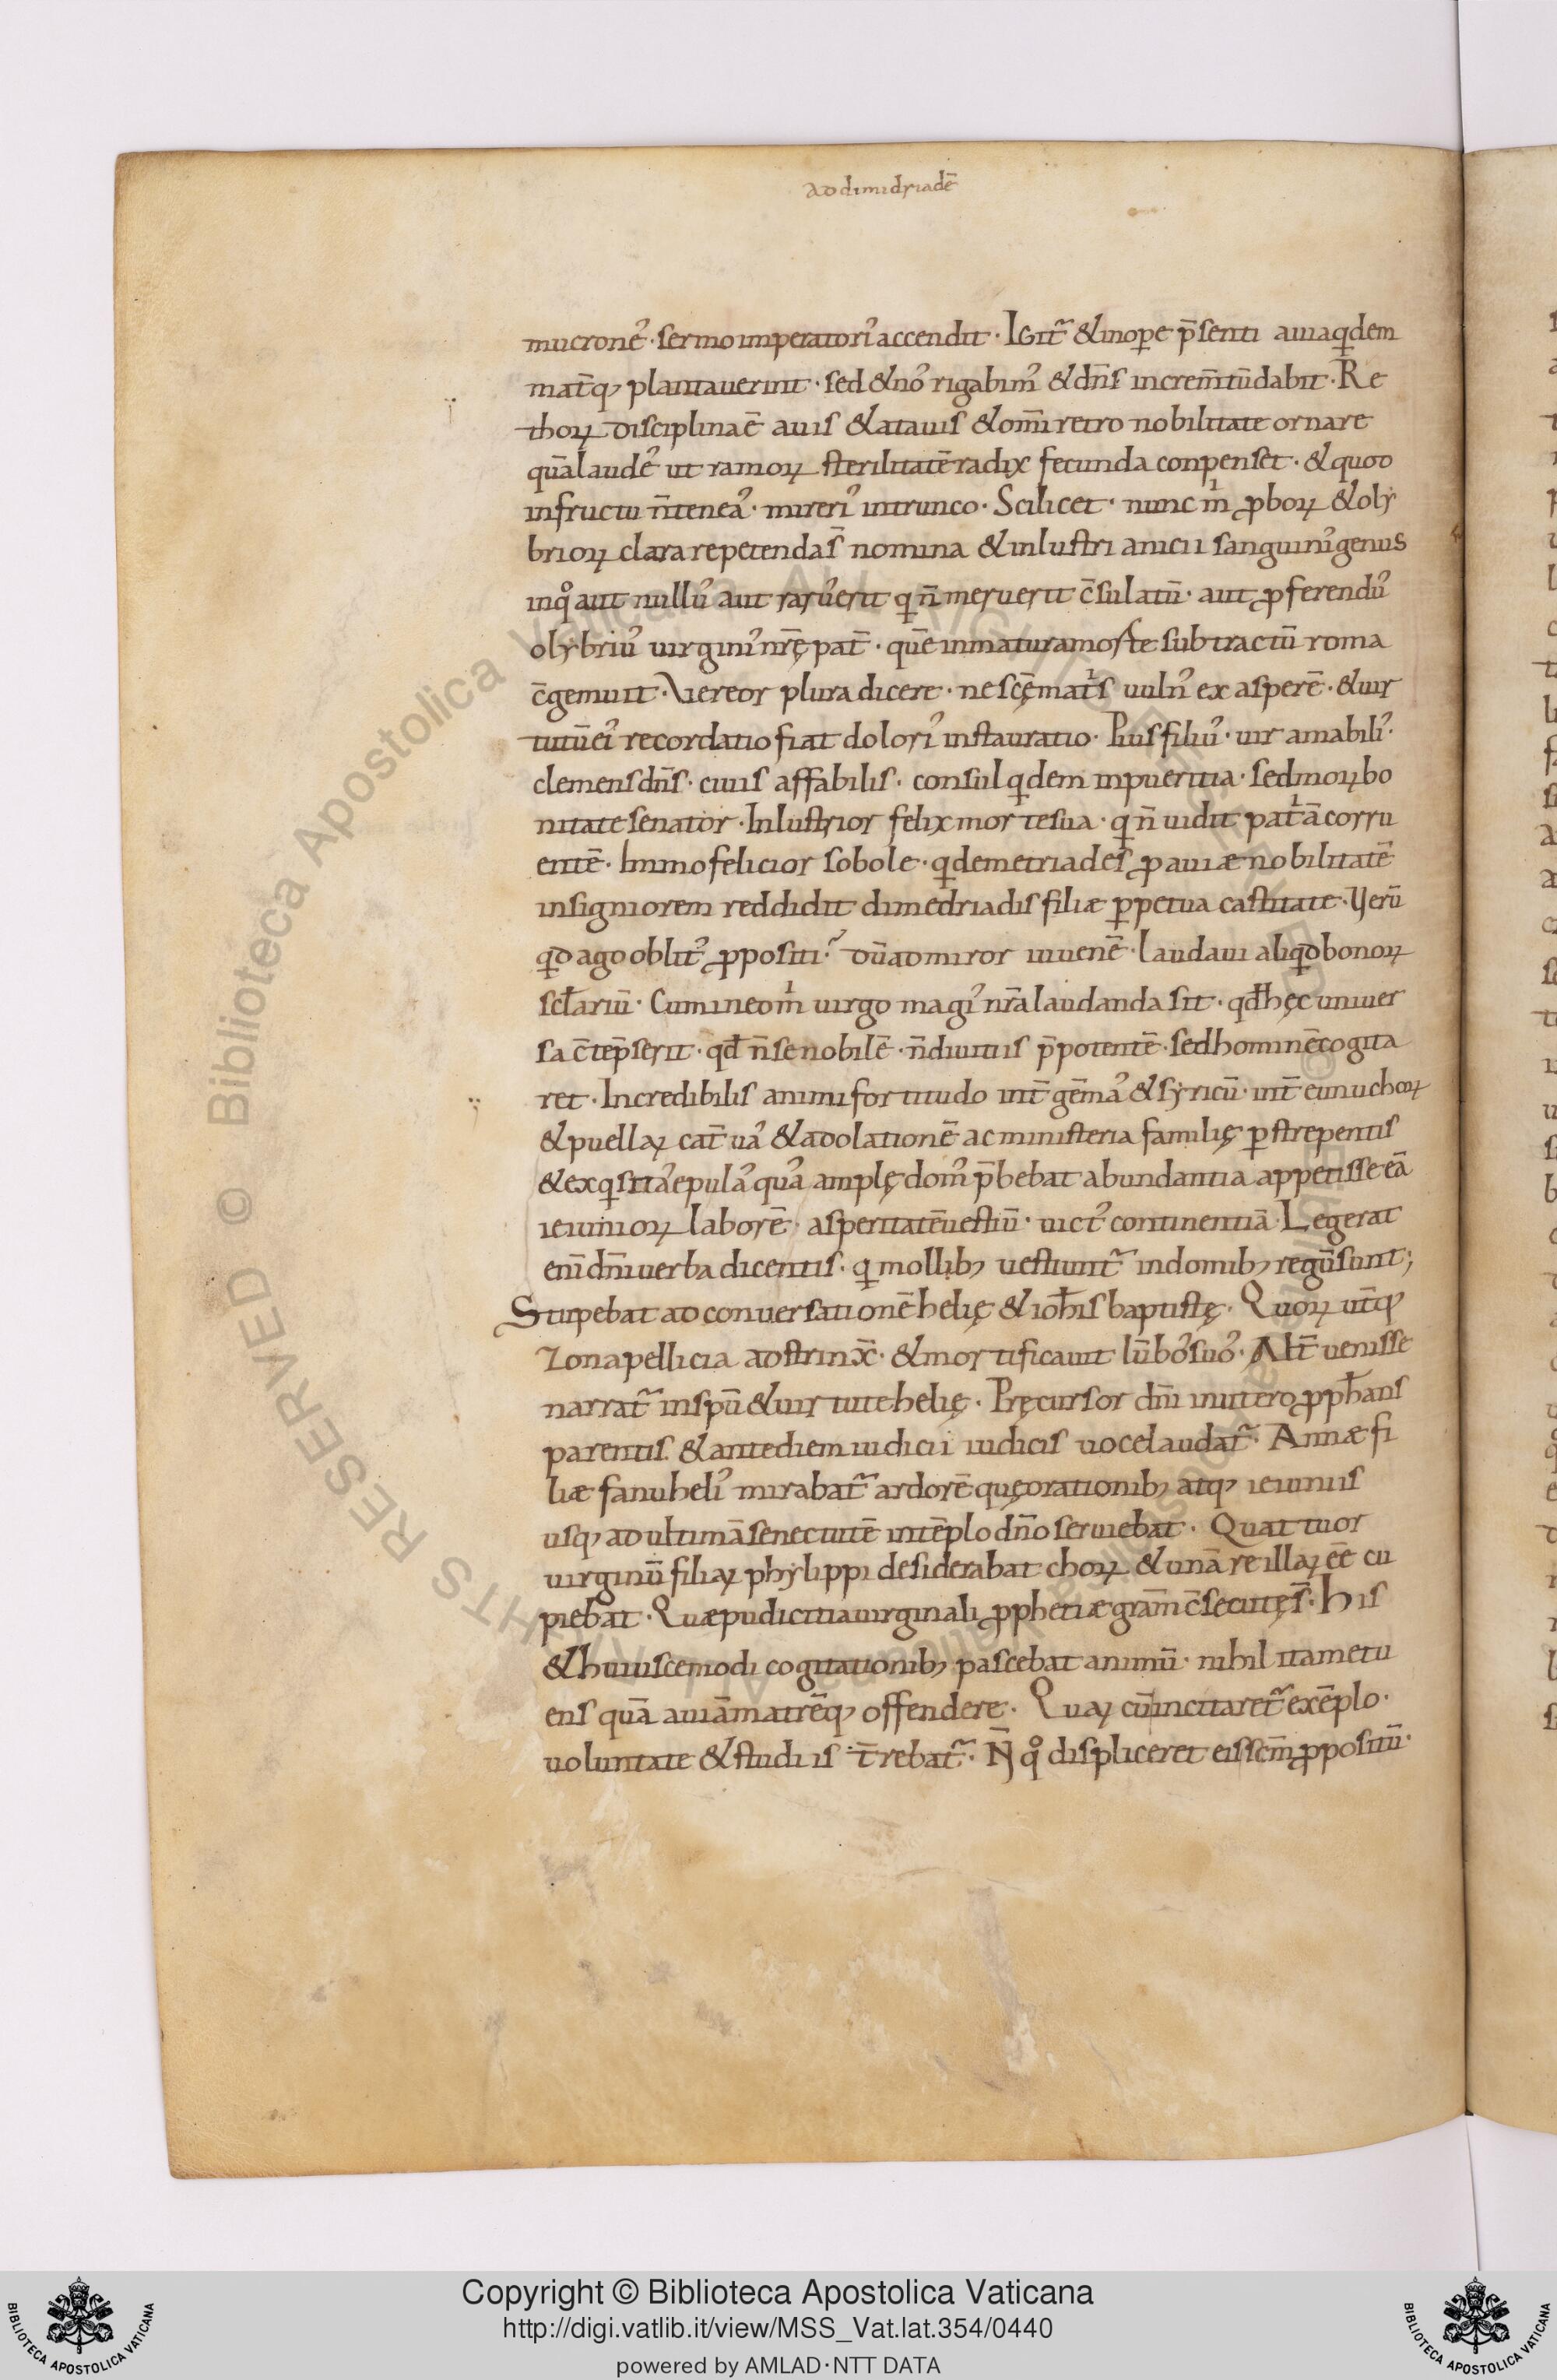 ad dimidriadē
mucrone᾽· sermo imperatori᾽ accendit · Igit᷑ & in oꝑe p̄senti auia qͥdem
mat̄q; plantauerint · sed & no᾽ rigabim᾽ & dn̄s increm̄tū dabit · Re
thoꝝ disciplinaē auis & atauis & om̄i retro nobilitate ornare
quā laude᾽ ut ramoꝝ sterilitatē radix fecunda conpenset · & quod
in fructu n̄ tenea᾽ · mireri᾽ in trunco · Scilicet · nunc m̄ ꝓboꝝ & oly
brioꝝ clara repetenda s̄ nomina & inlustri anicii sanguini᾽ genus
in qͦ aut nullu᾽ aut raru᾽ erit qͥ n̄ meruerit c̄sulatū · aut ꝓferendu᾽
olybriu᾽ uirgini᾽ nr̄ę pat̄ · quē inmatura morte subtractū roma
c̄gemuit · Vereor plura dicere · ne scę̄ matⁱs uuln᾽ exasperē · & uir
tutū ei᾽ recordatio fiat dolori᾽ instauratio · Pius filiu᾽ · uir amabili᾽ ·
clemens dn̄s · ciuis affabilis · consul qͥdem in pueritia · sed moꝝ bo
nitate senator · Inlustrior felix morte sua · qͥ n̄ uidit patⁱā corru
entē · Immo felicior sobole · qͥ demetriades ꝓauiæ nobilitatē
insigniorem reddidit dimedriadis filiæ ꝑpetua castitate · Verū
qͥd ago oblit᾽ ꝓpositi? dū admiror iuuenē · laudaui aliqͥd bonoꝝ
scl̄ariū · Cum in eo mⁱ virgo magi᾽ nr̄a laudanda sit · qđ hęc uniuer
sa c̄tēpserit · qđ n̄ se nobilē · n̄ diuitiis p̄potentē · sed hominē cogita
ret · Incredibilis animi fortitudo int̄ gēma᾽ & syricū · int̄ eunuchoꝝ
& puellaꝝ cat̄ua᾽ & adolationē ac ministeria familię ꝑstrepentis
& exqͥsita᾽ epula᾽ qua᾽ amplę dom᾽ p̄bebat abundantia appetisse eā
ieiunioꝝ laborē · asperitatē uestiū · uict᾽ continentiā Legerat
enī dn̄i uerba dicentis · qͥ mollib; uestiunt᷑ in domib; regū sunt;
Stupebat ad conuersationē helię & ioh̄is baptistę · Quoꝝ ut̄q;
zona pellicia adstrinx̄ · & mortificauit lūbo᾽ suo᾽ · Alt̄ uenisse
narrat᷑ in spū & uirtute helię · Pręcursor dn̄i in utero ꝓph̄ans
parentis · & ante diem iudicii iudicis uoce laudat᷑ · Annæ fi
liæ fanuheli᾽ mirabat᷑ ardorē quę orationib; atq; ieiuniis
usq; ad ultimā senectutē in tēplo dn̄o seruiebat · Quattuor
uirginū filiaꝝ phylippi desiderabat choꝝ & unā re illaꝝ eē cu
piebat · Quæ pudicitia uirginali ꝓphetiæ gram̄ c̄secutę s̄ · His
& huiuscemodi cogitationib; pascebat animū · nihil ita metu
ens quā auiā matrēq; offendere · Quaꝝ cū incitaret᷑ exēplo ·
uoluntate & studiis t̄rebat᷑ · N̄ qͦ displiceret eis sc̄m ꝓpositū ·
Copyright © Biblioteca Apostolica Vaticana
http://digi.vatlib.it/view/MSS_Vat.lat.354/0440
powered by AMLAD·NTT DATA